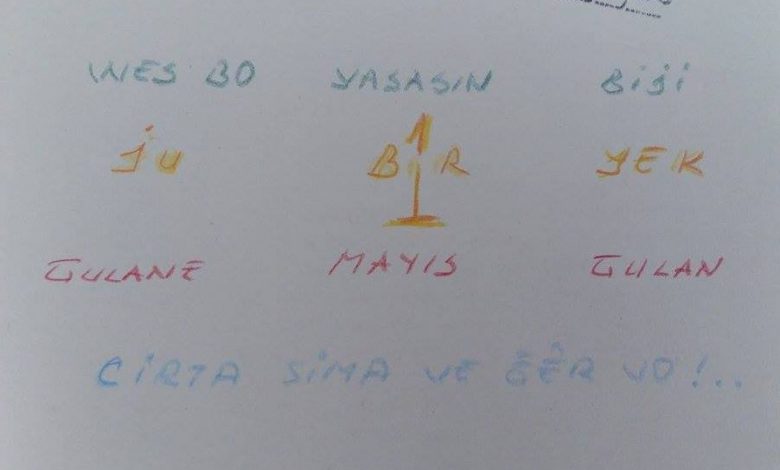 WES BO YAŞASIN BİJİ
JU BİR YEK
GULANE MAYIS GULAN
SİMA VE XÊR VO!..